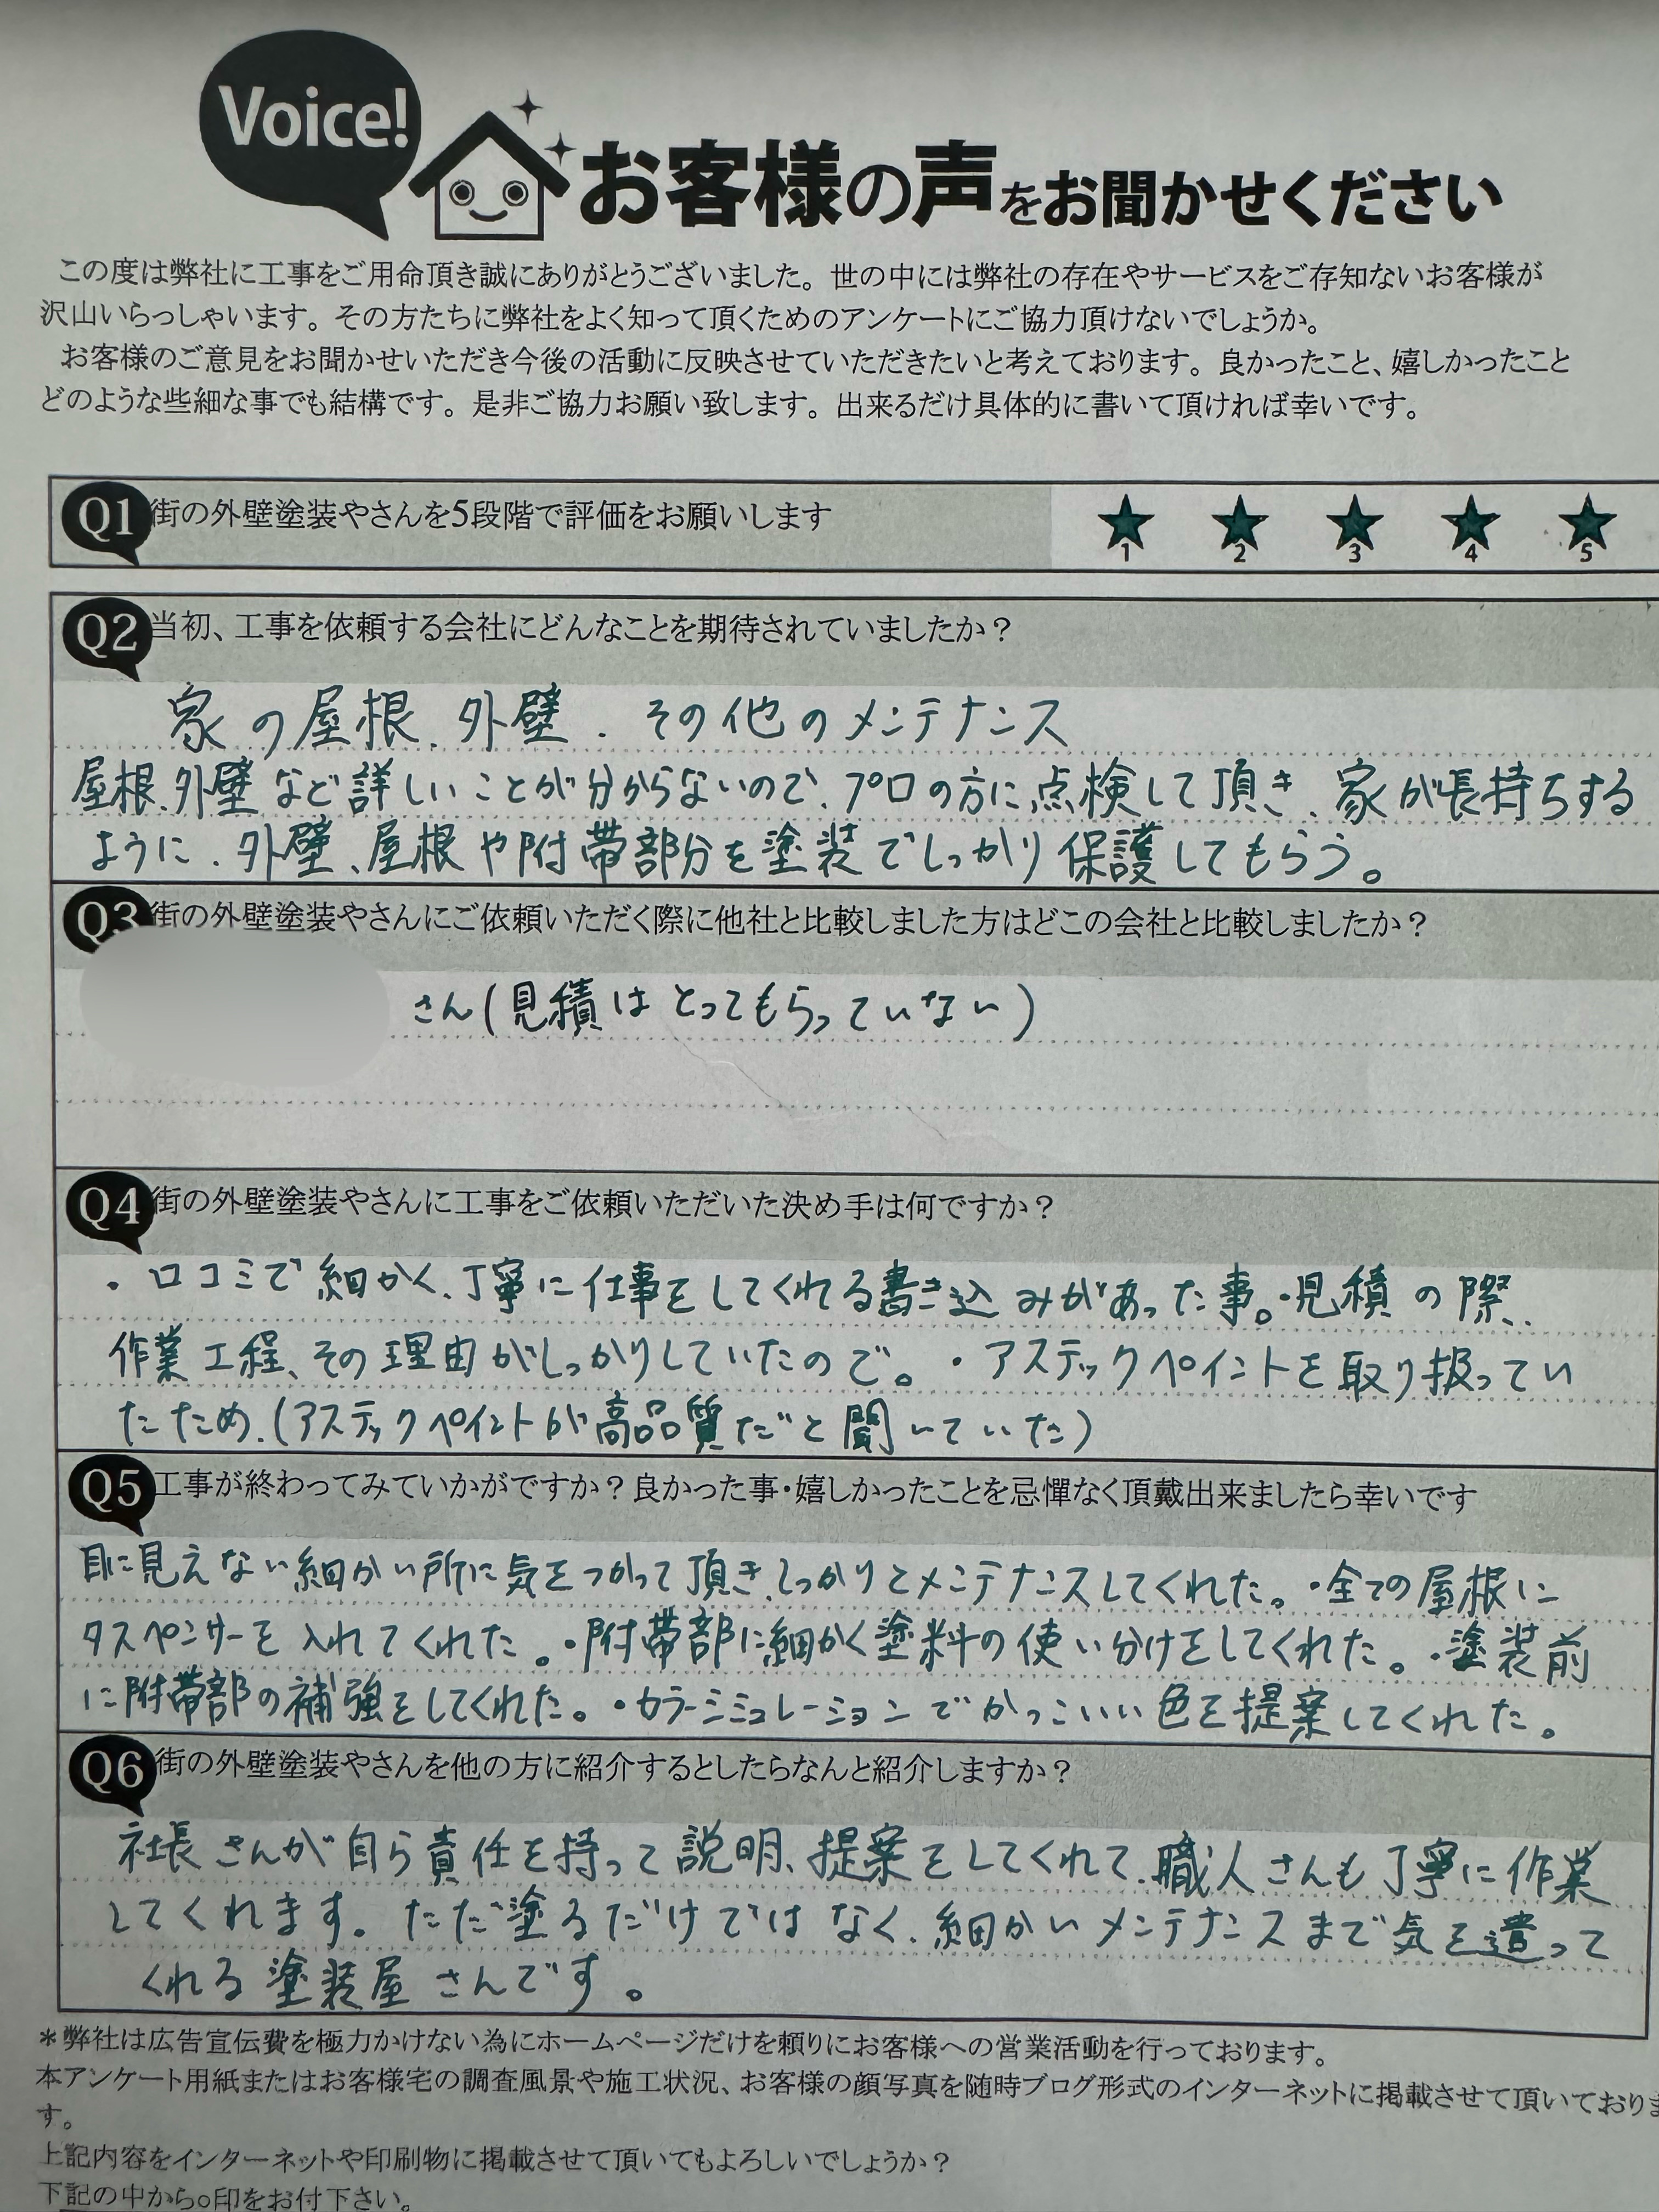 Voice!
お客様の声をお聞かせください
この度は弊社に工事をご用命頂き誠にありがとうございました。世の中には弊社の存在やサービスをご存知ないお客様が
沢山いらっしゃいます。その方たちに弊社をよく知って頂くためのアンケートにご協力頂けないでしょうか。
お客様のご意見をお聞かせいただき今後の活動に反映させていただきたいと考えております。良かったこと、嬉しかったこと
どのような些細な事でも結構です。是非ご協力お願い致します。出来るだけ具体的に書いて頂ければ幸いです。
Q1 街の外壁塗装やさんを5段階で評価をお願いします
1 2 3 4 5
Q2 当初、工事を依頼する会社にどんなことを期待されていましたか?
家の屋根、外壁、その他のメンテナンス
屋根、外壁など詳しいことが分からないので、プロの方に点検して頂き、家が長持ちする
ように、外壁、屋根や附帯部分を塗装でしっかり保護してもらう。
Q3 街の外壁塗装やさんにご依頼いただく際に他社と比較しました方はどこの会社と比較しましたか?
さん(見積はとってもらっていない)
Q4 街の外壁塗装やさんに工事をご依頼いただいた決め手は何ですか?
・口コミで細かく、丁寧に仕事をしてくれる書き込みがあった事。・見積の際、
作業工程、その理由がしっかりしていたので。・アステックペイントを取り扱ってい
たため、(アステックペイントが高品質だと聞いていた)
Q5 工事が終わってみていかがですか?良かった事・嬉しかったことを忌憚なく頂戴出来ましたら幸いです
目に見えない細かい所に気をつかって頂き、しっかりとメンテナンスしてくれた。・全ての屋根に
タスペンサーを入れてくれた。・附帯部に細かく塗料の使い分けをしてくれた。・塗装前
に附帯部の補強をしてくれた。・カラーシミュレーションでかっこいい色を提案してくれた。
Q6 街の外壁塗装やさんを他の方に紹介するとしたらなんと紹介しますか?
社長さんが自ら責任を持って説明、提案をしてくれて、職人さんも丁寧に作業
してくれます。ただ塗るだけではなく、細かいメンテナンスまで気を遣って
くれる塗装屋さんです。
*弊社は広告宣伝費を極力かけない為にホームページだけを頼りにお客様への営業活動を行っております。
本アンケート用紙またはお客様宅の調査風景や施工状況、お客様の顔写真を随時ブログ形式のインターネットに掲載させて頂いておりま
す。
上記内容をインターネットや印刷物に掲載させて頂いてもよろしいでしょうか?
下記の中から○印をお付下さい。